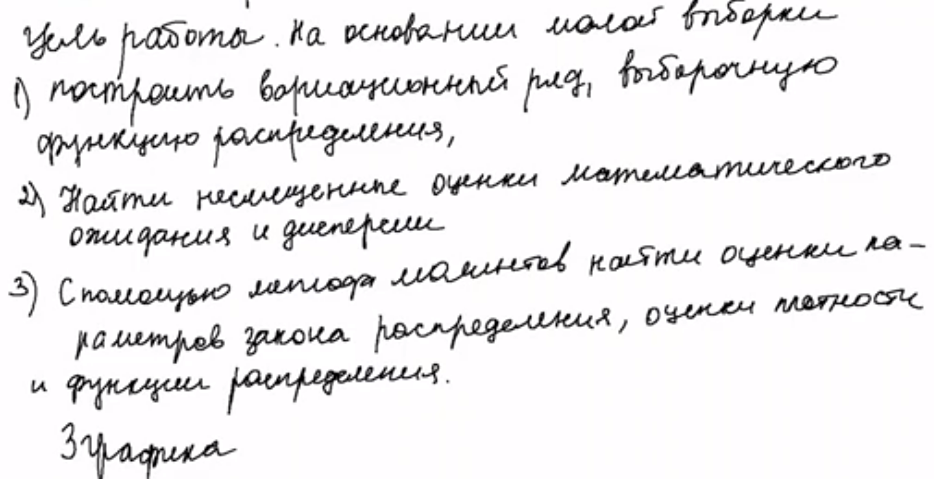 Цель работы. На основании малой выборки
1) построить вариационный ряд, выборочную
функцию распределения,
2) Найти несмещенные оценки математического
ожидания и дисперсии
3) С помощью метода моментов найти оценки па-
раметров закона распределения, оценки плотности
и функции распределения.
3 графика